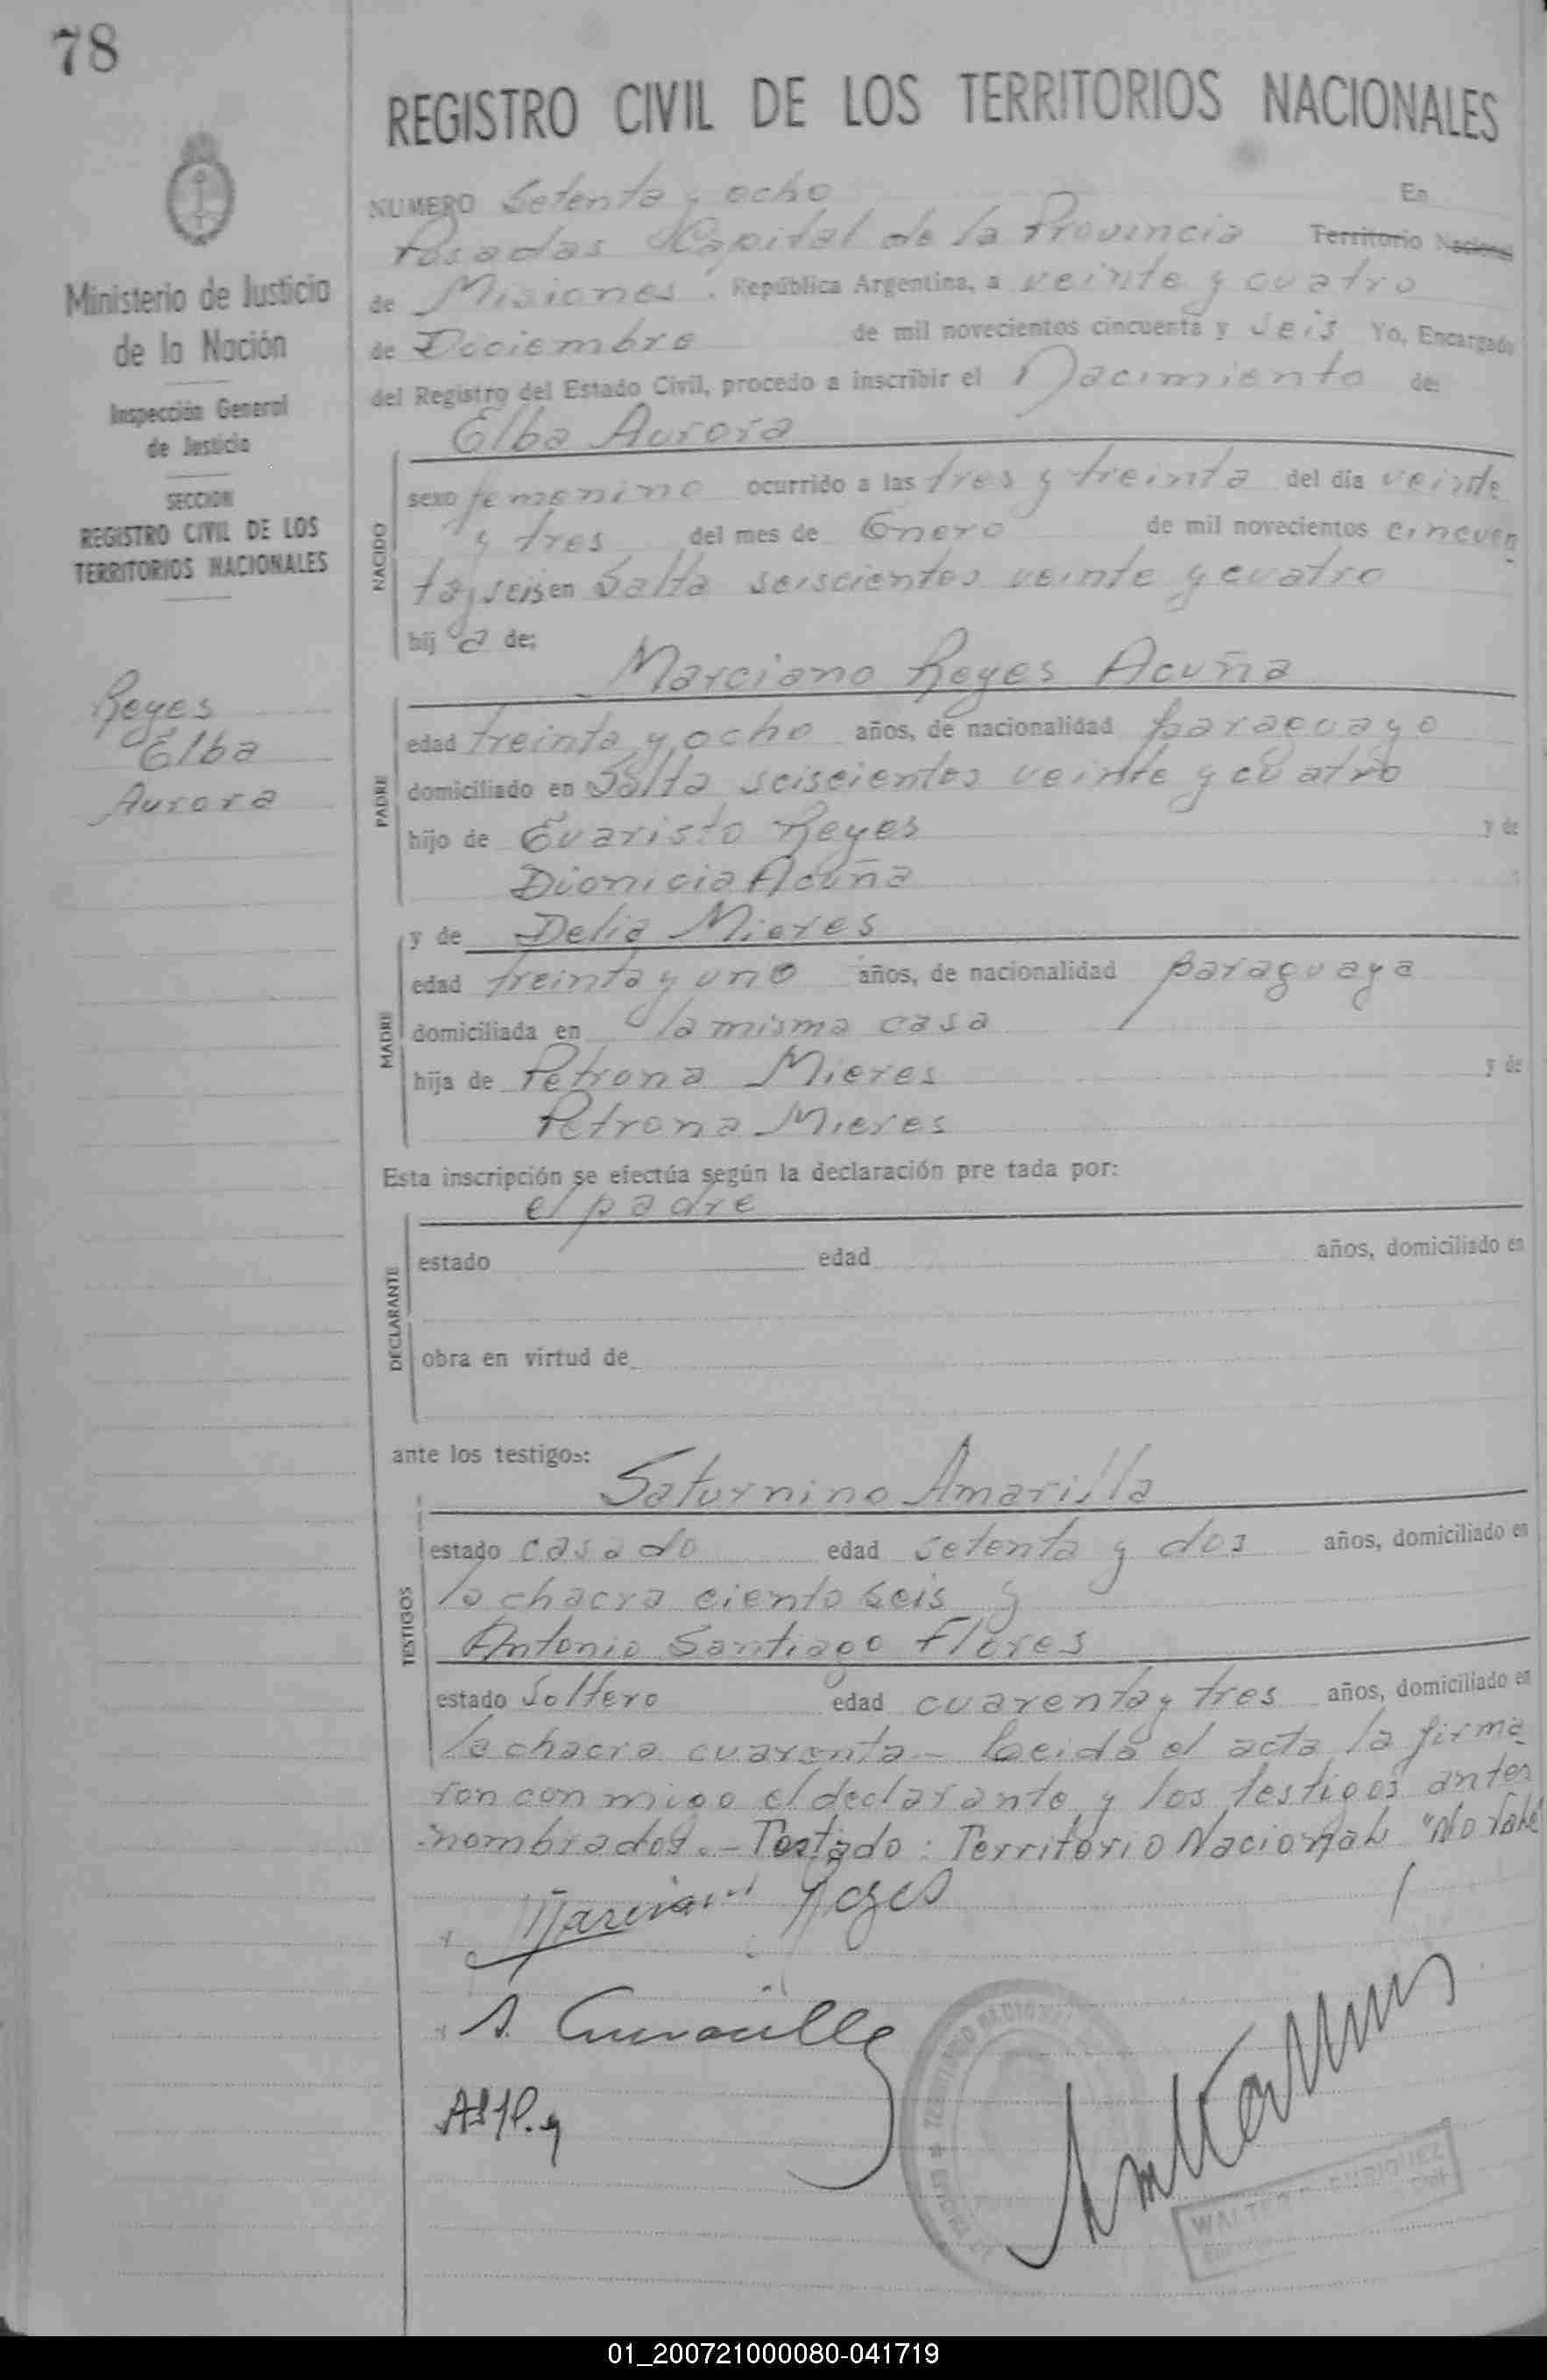 78
REGISTRO CIVIL DE LOS TERRITORIOS NACIONALES
Ministerio de Justicia
de la Nación
Inspección General
de Justicia
SECCION
REGISTRO CIVIL DE LOS
TERRITORIOS NACIONALES
Reyes
Elba
Aurora
NUMERO Setenta y ocho En
Posadas Capital de la Provincia Territorio Nacional
de Misiones . República Argentina, a veinte y cuatro
de Diciembre de mil novecientos cincuenta y seis Yo, Encargado
del Registro del Estado Civil, procedo a inscribir el Nacimiento de:
Elba Aurora
NACIDO
sexo femenino ocurrido a las tres y treinta del día veinte
y tres del mes de Enero de mil novecientos cincuen
ta y seis en Salta seiscientos veinte y cuatro
hij a de:
Marciano Reyes Acuña
PADRE
edad treinta y ocho años, de nacionalidad paraguayo
domiciliado en Salta seiscientos veinte y cuatro
hijo de Evaristo Reyes y de
Dionicia Acuña
MADRE
y de Delia Mieres
edad treinta y uno años, de nacionalidad paraguaya
domiciliada en la misma casa
hija de Petrona Mieres y de
Petrona Mieres
Esta inscripción se efectúa según la declaración pre tada por:
el padre
DECLARANTE
estado edad años, domiciliado en
obra en virtud de
ante los testigos:
Saturnino Amarilla
TESTIGOS
estado casado edad setenta y dos años, domiciliado en
la chacra ciento seis y
Antonio Santiago Flores
estado Soltero edad cuarenta y tres años, domiciliado en
la chacra cuarenta - Leida el acta la firma
ron conmigo el declarante y los testigos antes
nombrados. - Testado: Territorio Nacional "No Vale
Marciano Reyes
TERRITORIO NACIONAL
WALTER
01_200721000080-041719